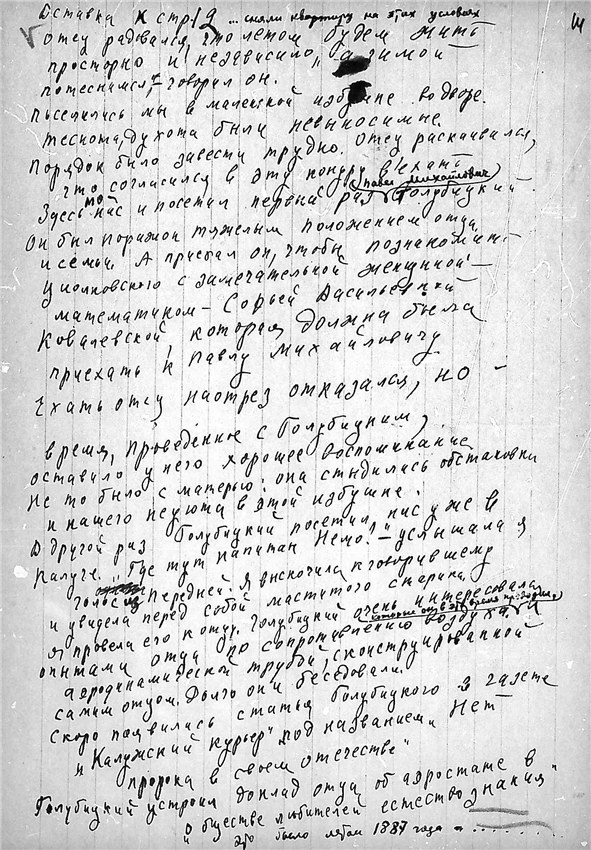 Вставка к стр 12 ... сняли квартиру на этих условиях
Отец радовался, что летом будем жить
просторно и независимо, "а зимой
потеснимся", - говорил он.
Поселились мы в маленькой избушке во дворе.
Теснота, духота были невыносимые.
Порядок было завести трудно. Отец раскаивался,
что согласился в эту конуру въехать.
Здесь нас и посетил первый раз Павел Михайлович Голубицкий.
Он был поражён тяжёлым положением отца
и семьи. А приехал он, чтобы познакомить
Циолковского с замечательной женщиной -
математиком - Софьей Васильевной
Ковалевской, которая должна была
приехать к Павлу Михайловичу
Ехать отец наотрез отказался, но -
время, проведённое с Голубицким,
оставило у него хорошее воспоминание
Не то было с матерью: она стыдилась обстановки
и нашего неуюта в этой избушке.
В другой раз Голубицкий посетил нас уже в
Калуге. "Где тут капитан Немо?" - услышала я
голос из передней. Я выскочила к говорившему
и увидела перед собой маститого старика.
Я провела его к отцу. Голубицкий очень интересовался
опытами отца по сопротивлению воздуха, которые он в это время проводил, и
аэродинамической трубой, сконструированной
самим отцом. Долго они беседовали.
Скоро появилась статья Голубицкого в газете
"Калужский курьер" под названием "Нет
пророка в своём отечестве"
Голубицкий устроил доклад отца об аэростате в
Обществе любителей естествознания"
Это было летом 1887 года